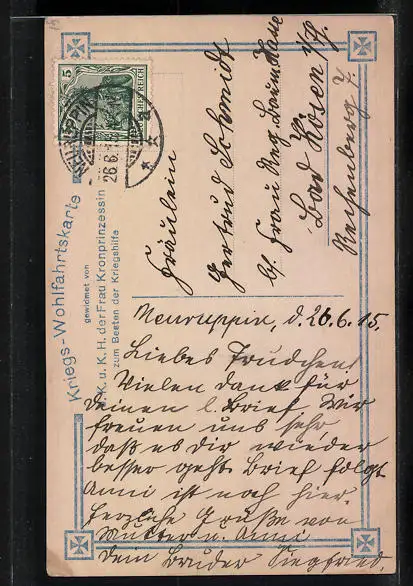 Kriegs-Wohlfahrtskarte
gewidmet von
I. K. u. K. H. der Frau Kronprinzessin
zum Besten der Kriegshilfe
5
DEUTSCHES REICH
NEURUPPIN
26.6.
Fräulein
Gertrud Schmidt
b/ Frau Reg. Baumeister
Bad Kösen
Reußenberg 7.
Neuruppin, d. 26.6.15.
Liebes Trudchen!
Vielen dank für
deinen l. Brief. Wir
freuen uns sehr,
daß es dir wieder
besser geht. Brief folgt
Anni ist noch hier.
Herzliche Grüße von
Mutter u. Anni
dein Bruder Siegfried.